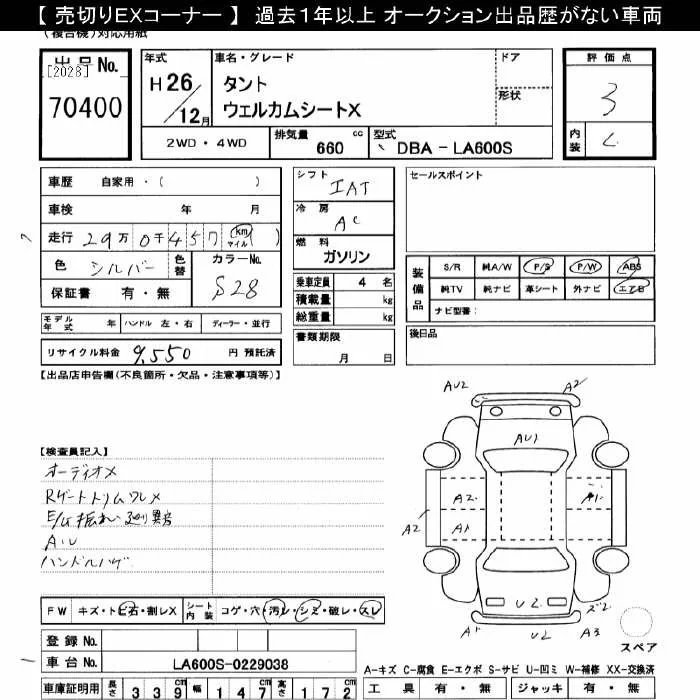 【 売切りEXコーナー 】 過去1年以上 オークション出品歴がない車両
(複合機)対応用紙
出品No.
[2028]
70400
年式
H26
/12月
車名・グレード
タント
ウェルカムシートX
ドア
形状
評価点
3
内装
2WD・4WD
排気量 660 cc
型式 DBA - LA600S
車歴 自家用・( )
車検 年 月
走行 29万0千457 km マイル ( )
色 シルバー 色替
カラーNo. S28
保証書 有・無
シフト
IAT
冷房
AC
燃料
ガソリン
乗車定員 4 名
積載量 kg
総重量 kg
セールスポイント
装備品
S/R 純A/W P/S P/W ABS
純TV 純ナビ 革シート 外ナビ エアB
ナビ型番:
モデル年式 年 ハンドル 左・右 ディーラー・並行
リサイクル料金 9,550 円 預託済
書類期限
月 日
後日品
【出品店申告欄(不良箇所・欠品・注意事項等)】
【検査員記入】
オーディオ×
Rゲートトリムワレ×
A・U
ハンドルハゲ
AU2
A2
AU1
A2
A1
A2
A1
U2
ズ2
A1
U2
A3
スペア
FW キズ・トビ石・割レX
シート内装 コゲ・穴・汚レ・シミ・破レ・スレ
登録 No.
車台 No. LA600S-0229038
車庫証明用 長さ 339 幅 147 高さ 172
A-キズ C-腐食 E-エクボ S-サビ U-凹ミ W-補修 XX-交換済
工具 有・無 ジャッキ 有・無